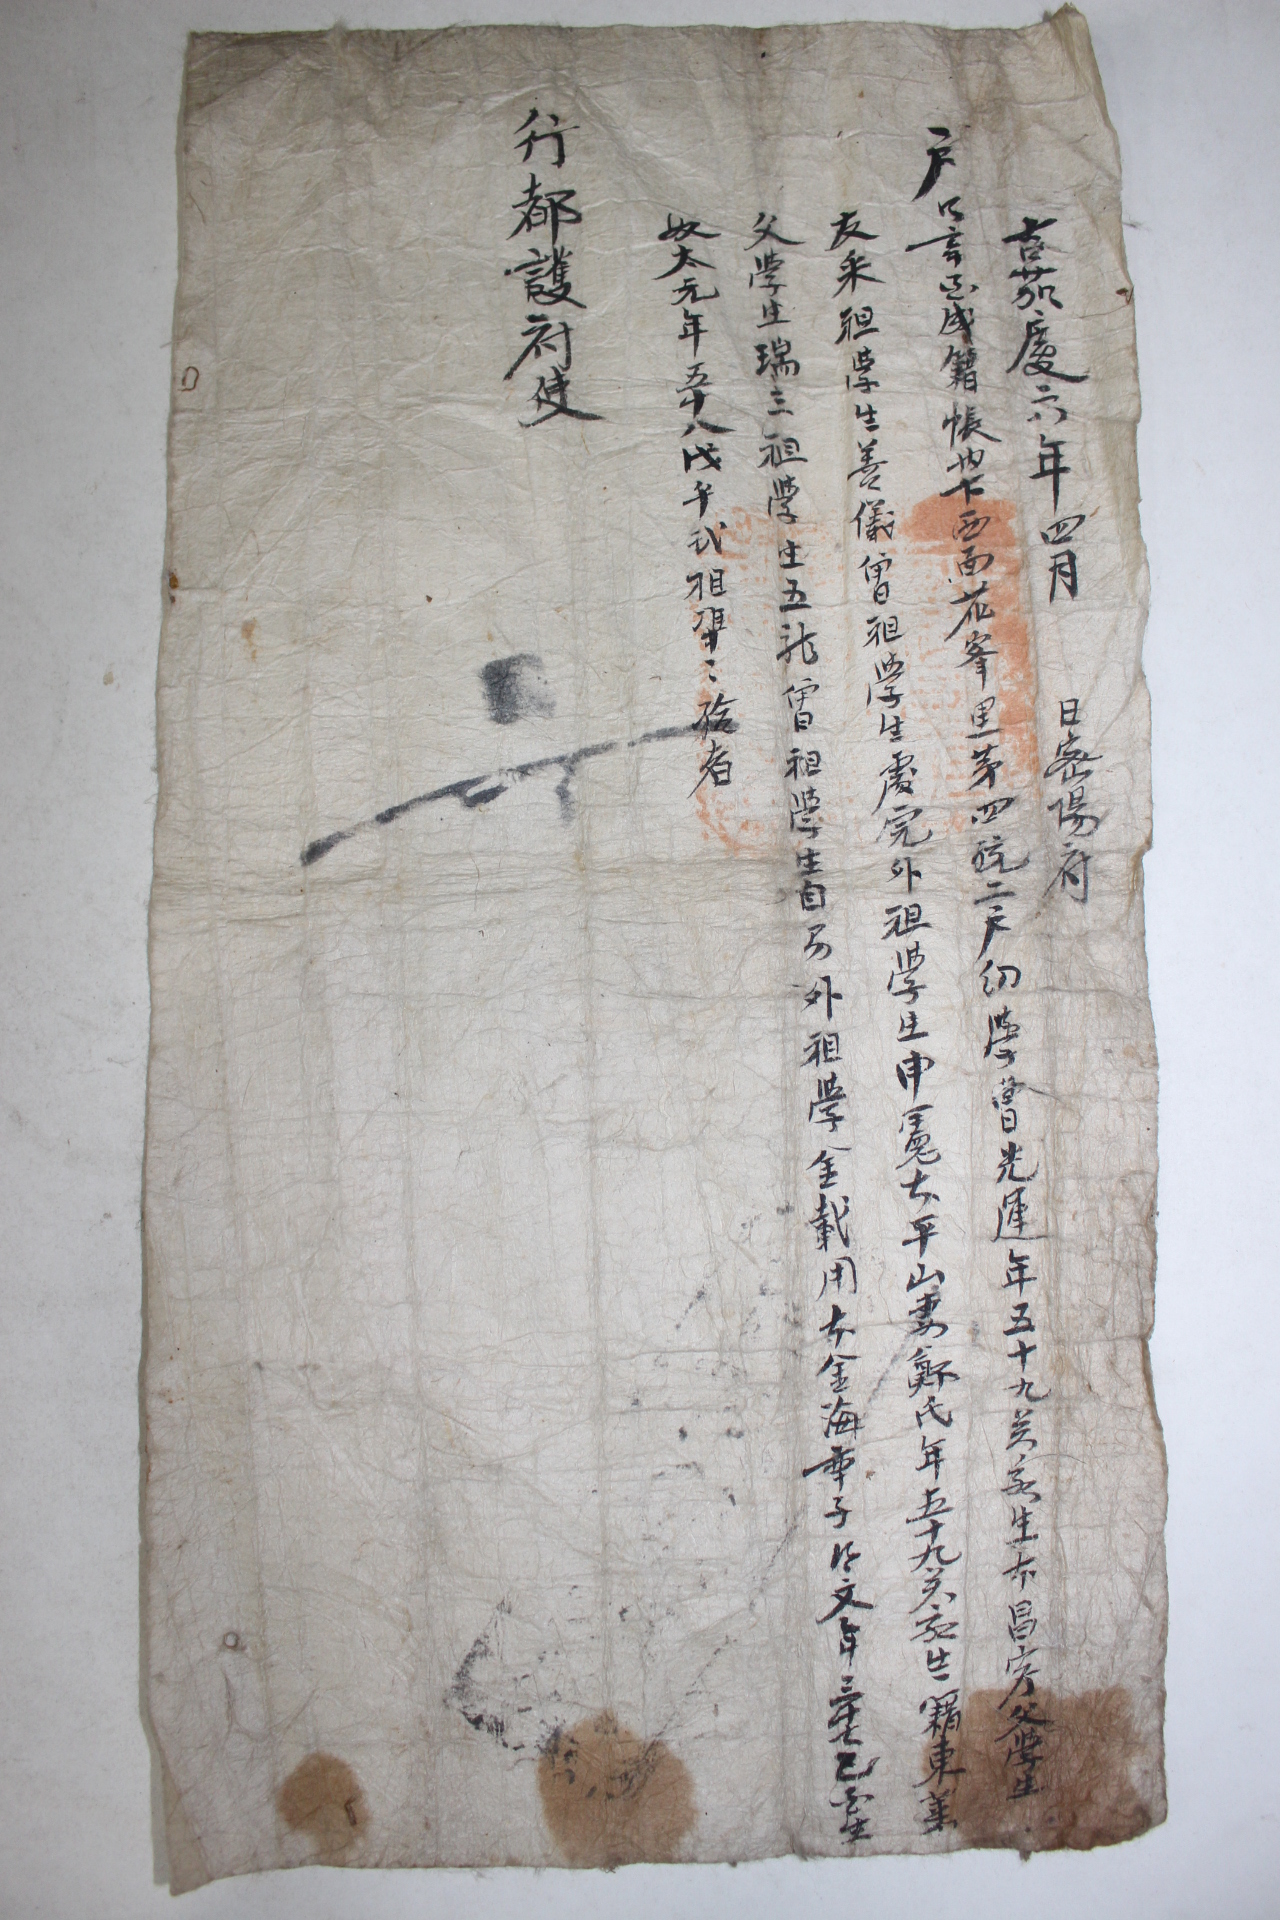 嘉慶六年四月 日密陽府
戶口帳內下西面花峯里第四統二戶幼學曺光運年五十九癸亥生本昌寧父學生
友采祖學生善儀曾祖學生處完外祖學生申本平山妻鄭氏年五十九癸亥生籍東萊
父學生瑞三祖學生五龍曾祖學生自易外祖學金載用本金海率子文年三十七乙酉生
奴太元年五十八
行都護府使